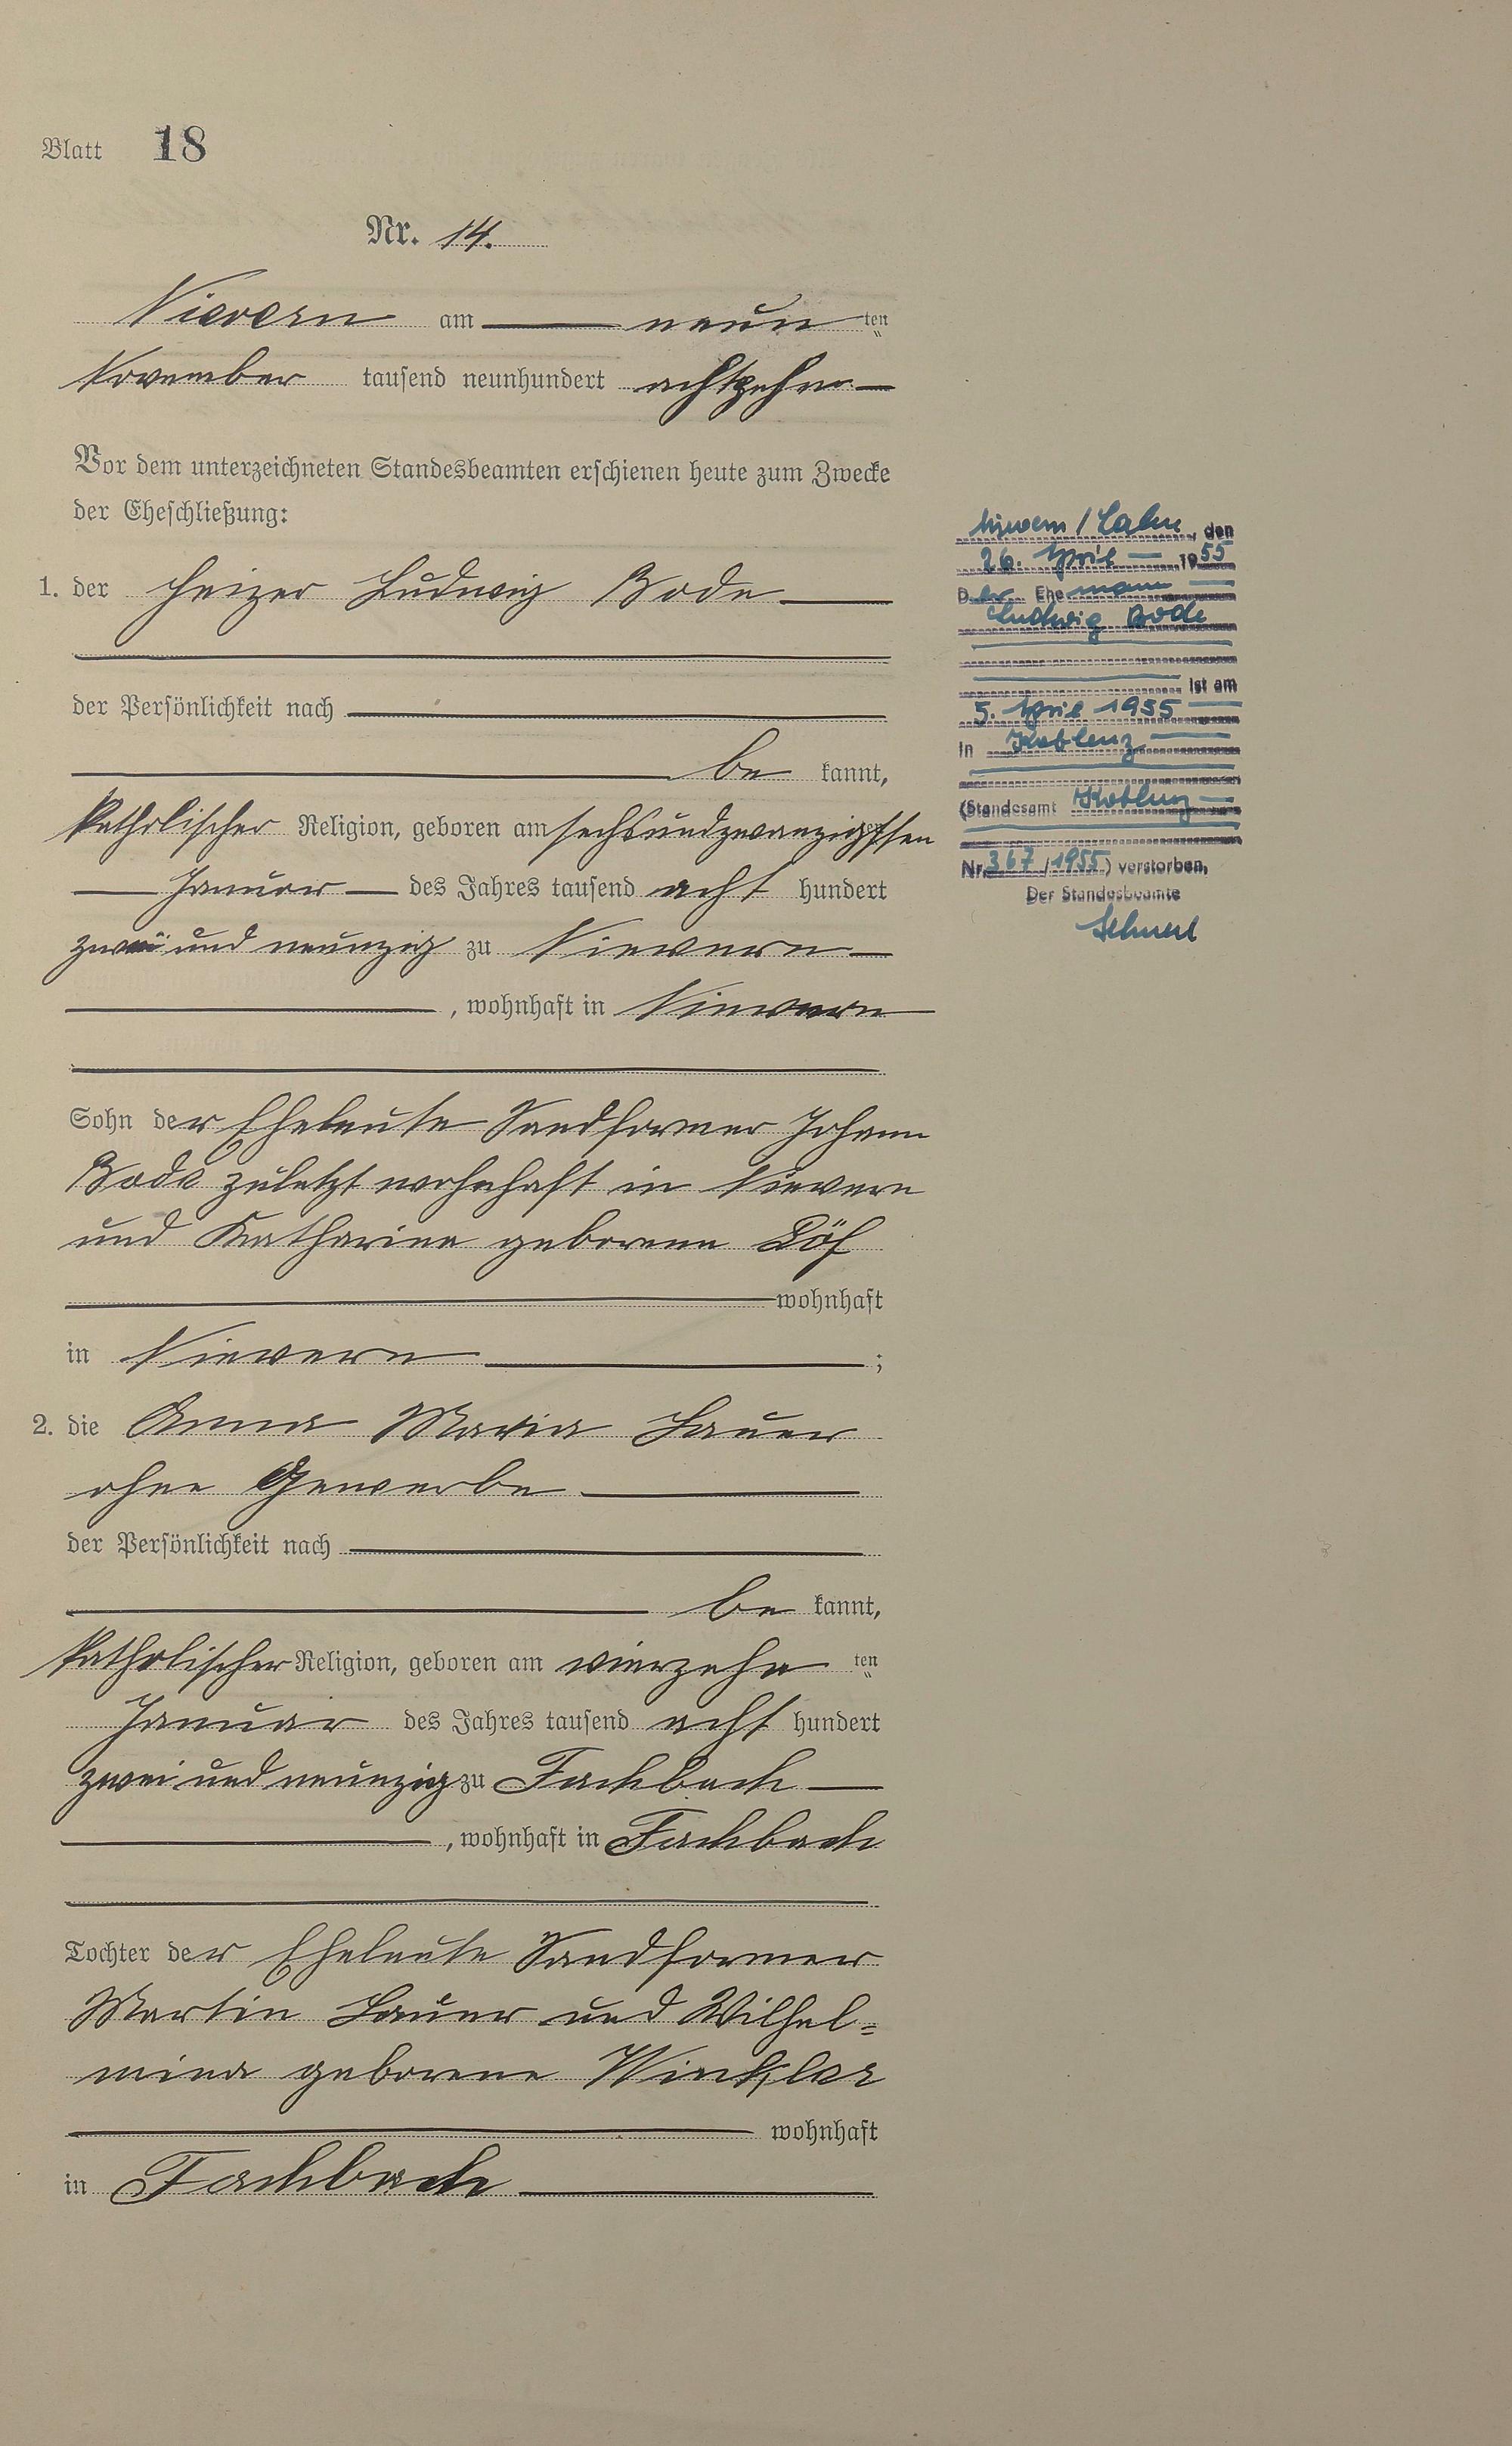 Blatt 18
Nr. 14.
Nievern am neunten
November tausend neunhundert achtzehn
Vor dem unterzeichneten Standesbeamten erschienen heute zum Zwecke
der Eheschließung:
1. der Heizer Ludwig Bode
der Persönlichkeit nach
be kannt,
katholischer Religion, geboren am sechsundzwanzigsten
Januar des Jahres tausend acht hundert
zwei und neunzig zu Nievern
, wohnhaft in Nievern
Sohn der Eheleute Sandformer Johann
Bode zuletzt wohnhaft in Nievern
und Katharina geborene
wohnhaft
in Nievern ;
2. die Anna Maria Lauer
ohne Gewerbe
der Persönlichkeit nach
be kannt,
katholischer Religion, geboren am vierzehn ten
Januar des Jahres tausend acht hundert
zwei und neunzig zu Fachbach
, wohnhaft in Fachbach
Tochter der Eheleute Sandformer
Martin Lauer und Wilhel=
mina geborene Winkler
wohnhaft
in Fachbach
Nievern / Lahn, den
26. April 1955
Der Ehemann
Ludwig Bode
ist am
5. April 1955
in Koblenz
(Standesamt Koblenz
Nr. 367/1955) verstorben,
Der Standesbeamte